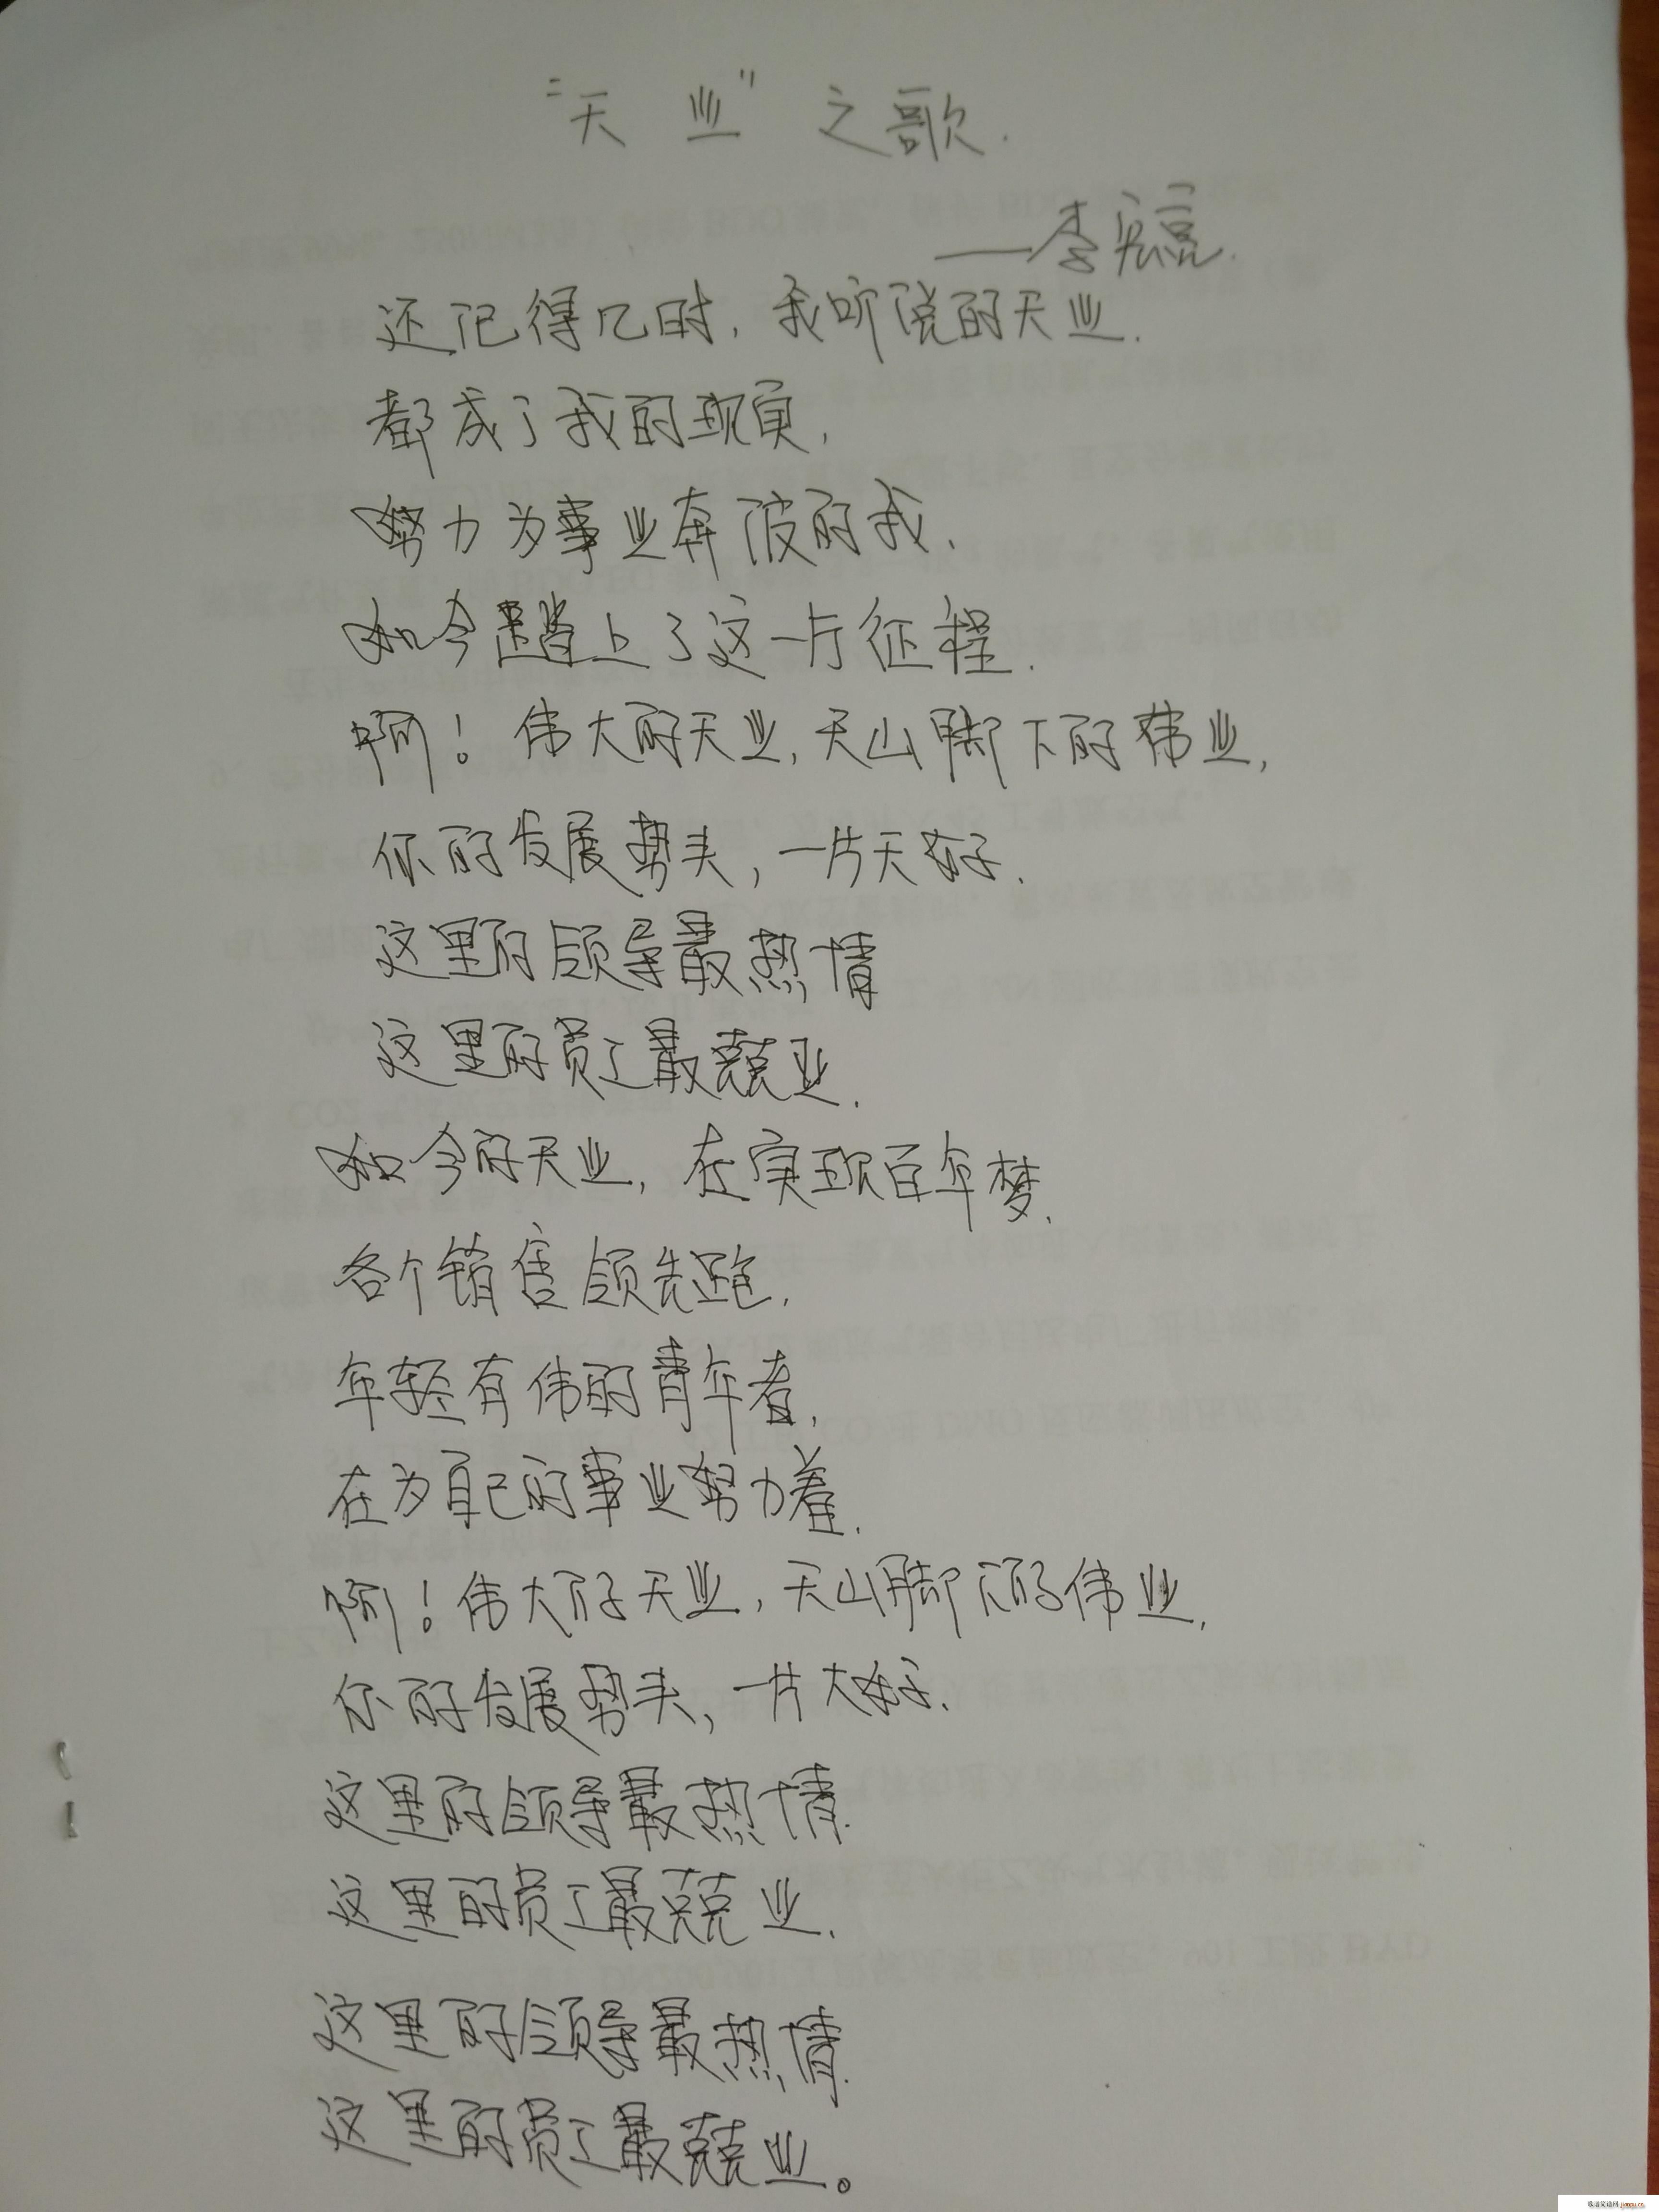 “天业”之歌.
——李宏亮.
还记得几时,我听说的天业.
都成了我的现实,
努力为事业奔波的我,
如今踏上了这一片征程.
啊!伟大的天业,天山脚下的伟业,
你的发展势头,一片大好.
这里的领导最热情
这里的员工最兢业.
如今的天业,在实现百年梦.
各个销售领先跑,
年轻有伟的青年者,
在为自己的事业努力着.
啊!伟大的天业,天山脚下的伟业,
你的发展势头,一片大好.
这里的领导最热情.
这里的员工最兢业.
这里的领导最热情.
这里的员工最兢业。
歌谱简谱网 jianpu.cn